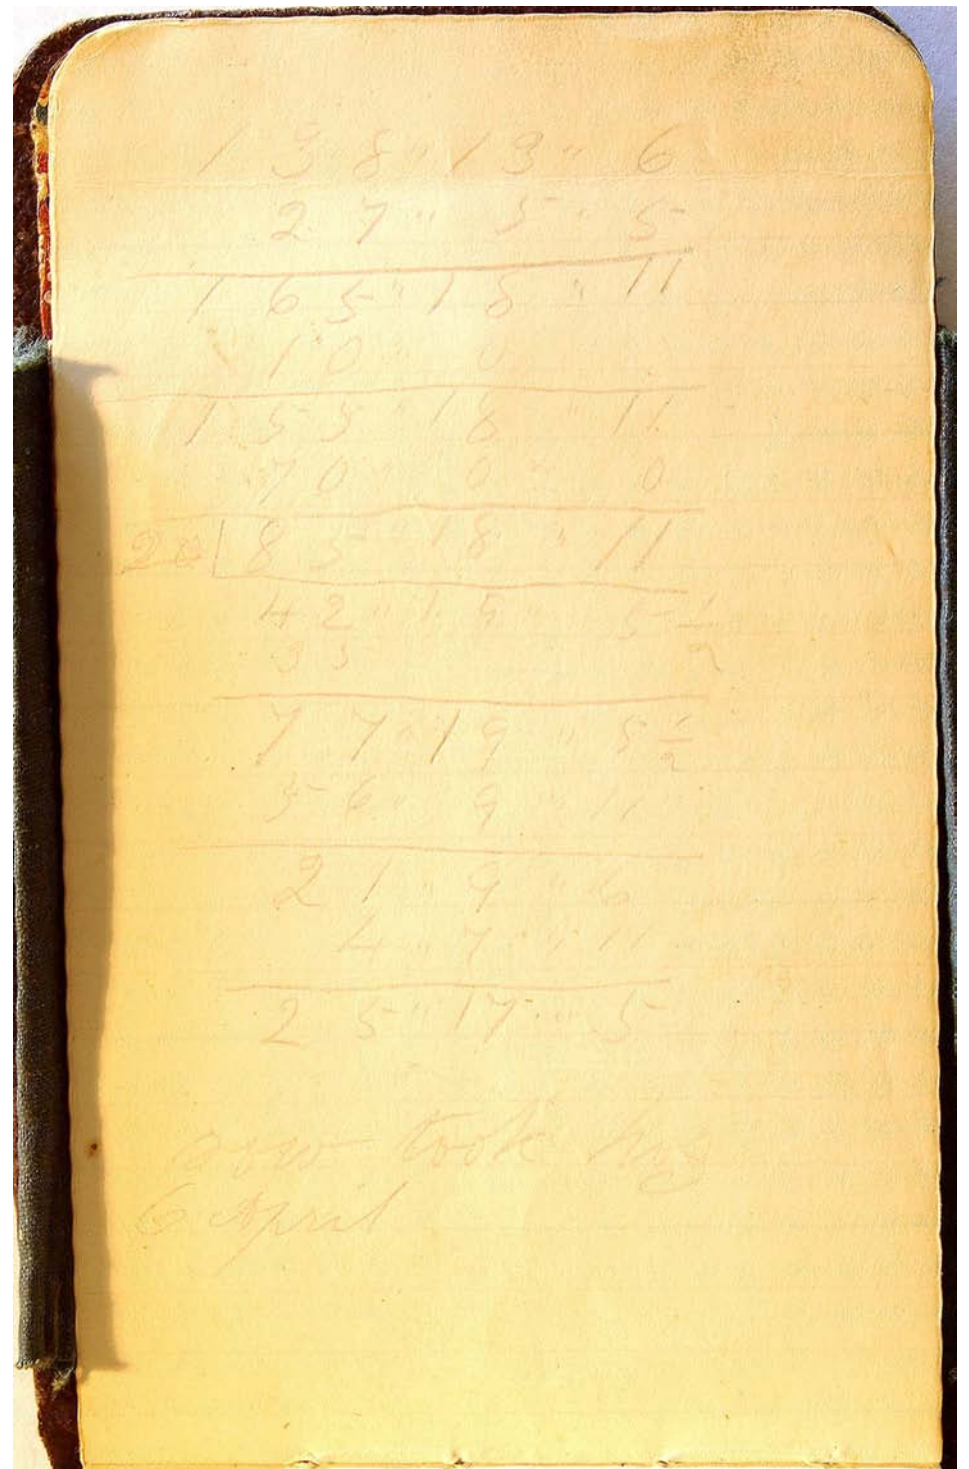 138 " 13 " 6
27 " 5 " 5
165 " 18 " 11
10 " 0
155 " 18 " 11
70 " 0 " 0
83 " 18 " 11
42 " 19 " 5 1/2
35
77 " 19 " 5 1/2
56 " 9 " 11
21 " 9 " 6
4 " 7 " 11
25 " 17 " 5
sow took hog
6 April